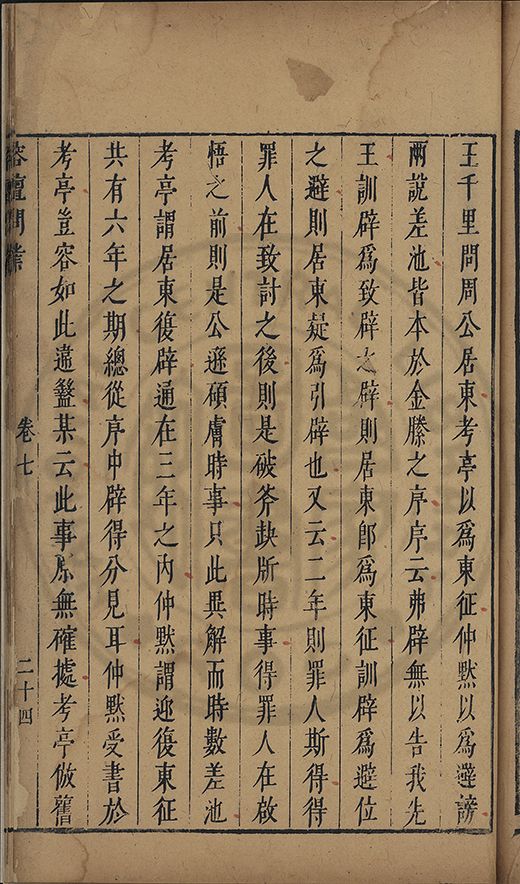 王千里問周公居東考亭以爲東征仲黙以爲避謗
兩說差池皆本於金縢之序序云弗辟無以告我先
王訓辟爲致辟之辟則居東卽爲東征訓辟爲避位
之避則居東疑爲引辟也又云二年則罪人斯得得
罪人在致討之後則是破斧缺斨時事得罪人在啟
悟之前則是公遜碩膚時事只此異解而時數差池
考亭謂居東復辟通在三年之內仲黙謂迎復東征
共有六年之期總從序中辟得分見耳仲黙受書於
考亭豈容如此違盭某云此事原無確據考亭倣舊
榕壇問業
卷七
二十四